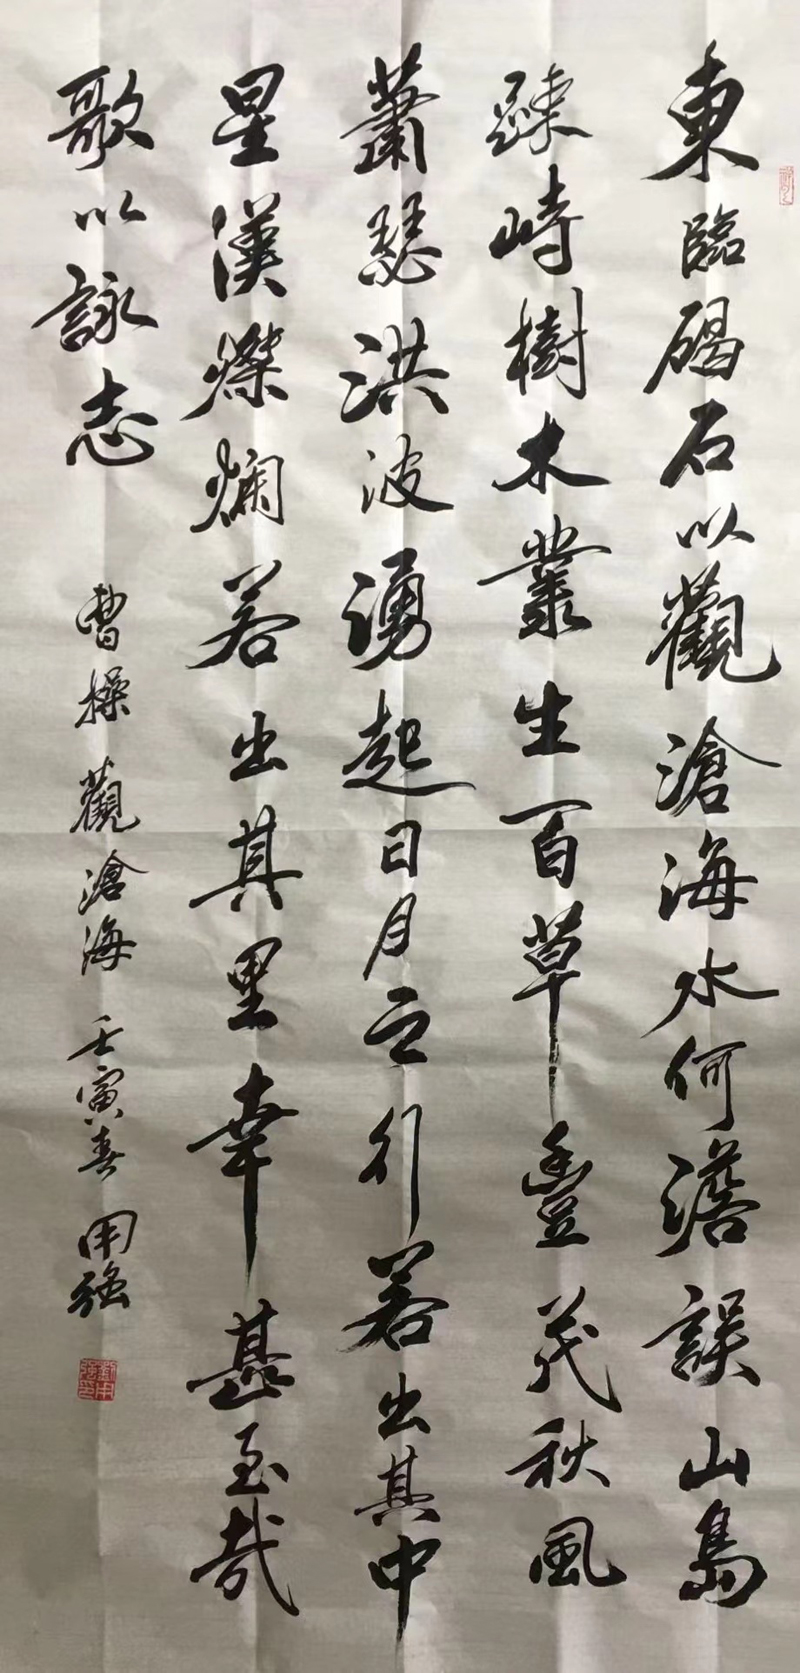 東臨碣石以觀滄海水何澹誤山島
踈峙樹木叢生百草豐茂秋風
蕭瑟洪波湧起日月之行若出其中
星漢燦爛若出其里幸甚至哉
歌以詠志
曹操觀滄海 壬寅春 用強